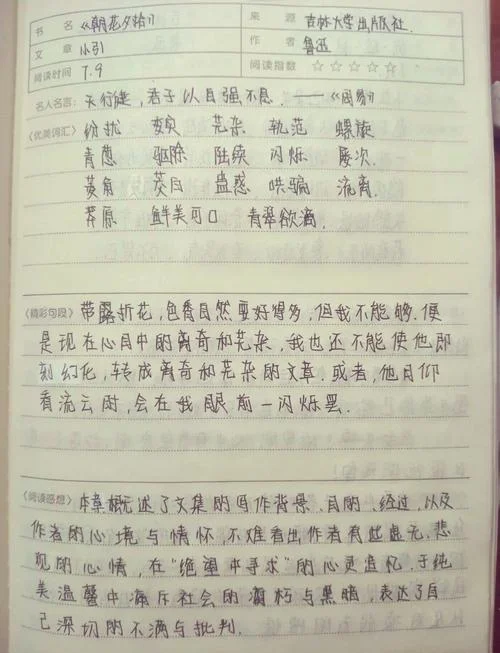 书 名 《朝花夕拾》 来 源 吉林大学出版社.
文 章 小引 作 者 鲁迅
阅读时间 7.9 阅读指数 ☆☆☆☆☆
名人名言: 天行健,君子以自强不息. ——《周易》
《优美词汇》 纷扰 变实 芜杂 轨范 螺旋
青葱 驱除 陆续 闪烁 屡次
茭角 茭白 蛊惑 哄骗 流离
莽原 鲜美可口 青翠欲滴.
《精彩句段》 带露折花,色香自然要好得多,但我不能够.便
是现在心目中的离奇和芜杂,我也还不能使他即
刻幻化,转成离奇和芜杂的文章.或者,他日仰
看流云时,会在我眼前一闪烁罢.
《阅读感想》 本章概述了文集的写作背景、目的、经过,以及
作者的心境与情怀,不难看出作者有些虚无、悲
观的心情,在"绝望中寻求"的心灵追忆.于纯
美温馨中海斥社会的腐朽与黑暗,表达了自
己深切的不满与批判.